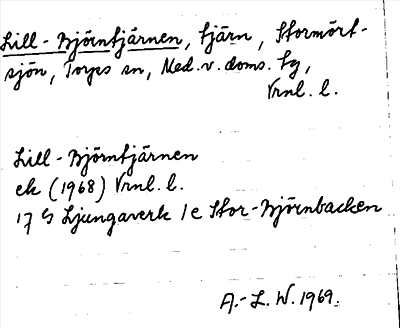 Lill-Björntjärnen, tjärn, Stormört-
sjön, Torps sn, Med.v.doms. tg,
Vrnl. l.
Lill-Björntjärnen
ek (1968) Vrnl. l.
17 G Ljungaverk 1e Stor-Björnbacken
A.-L. W. 1969.